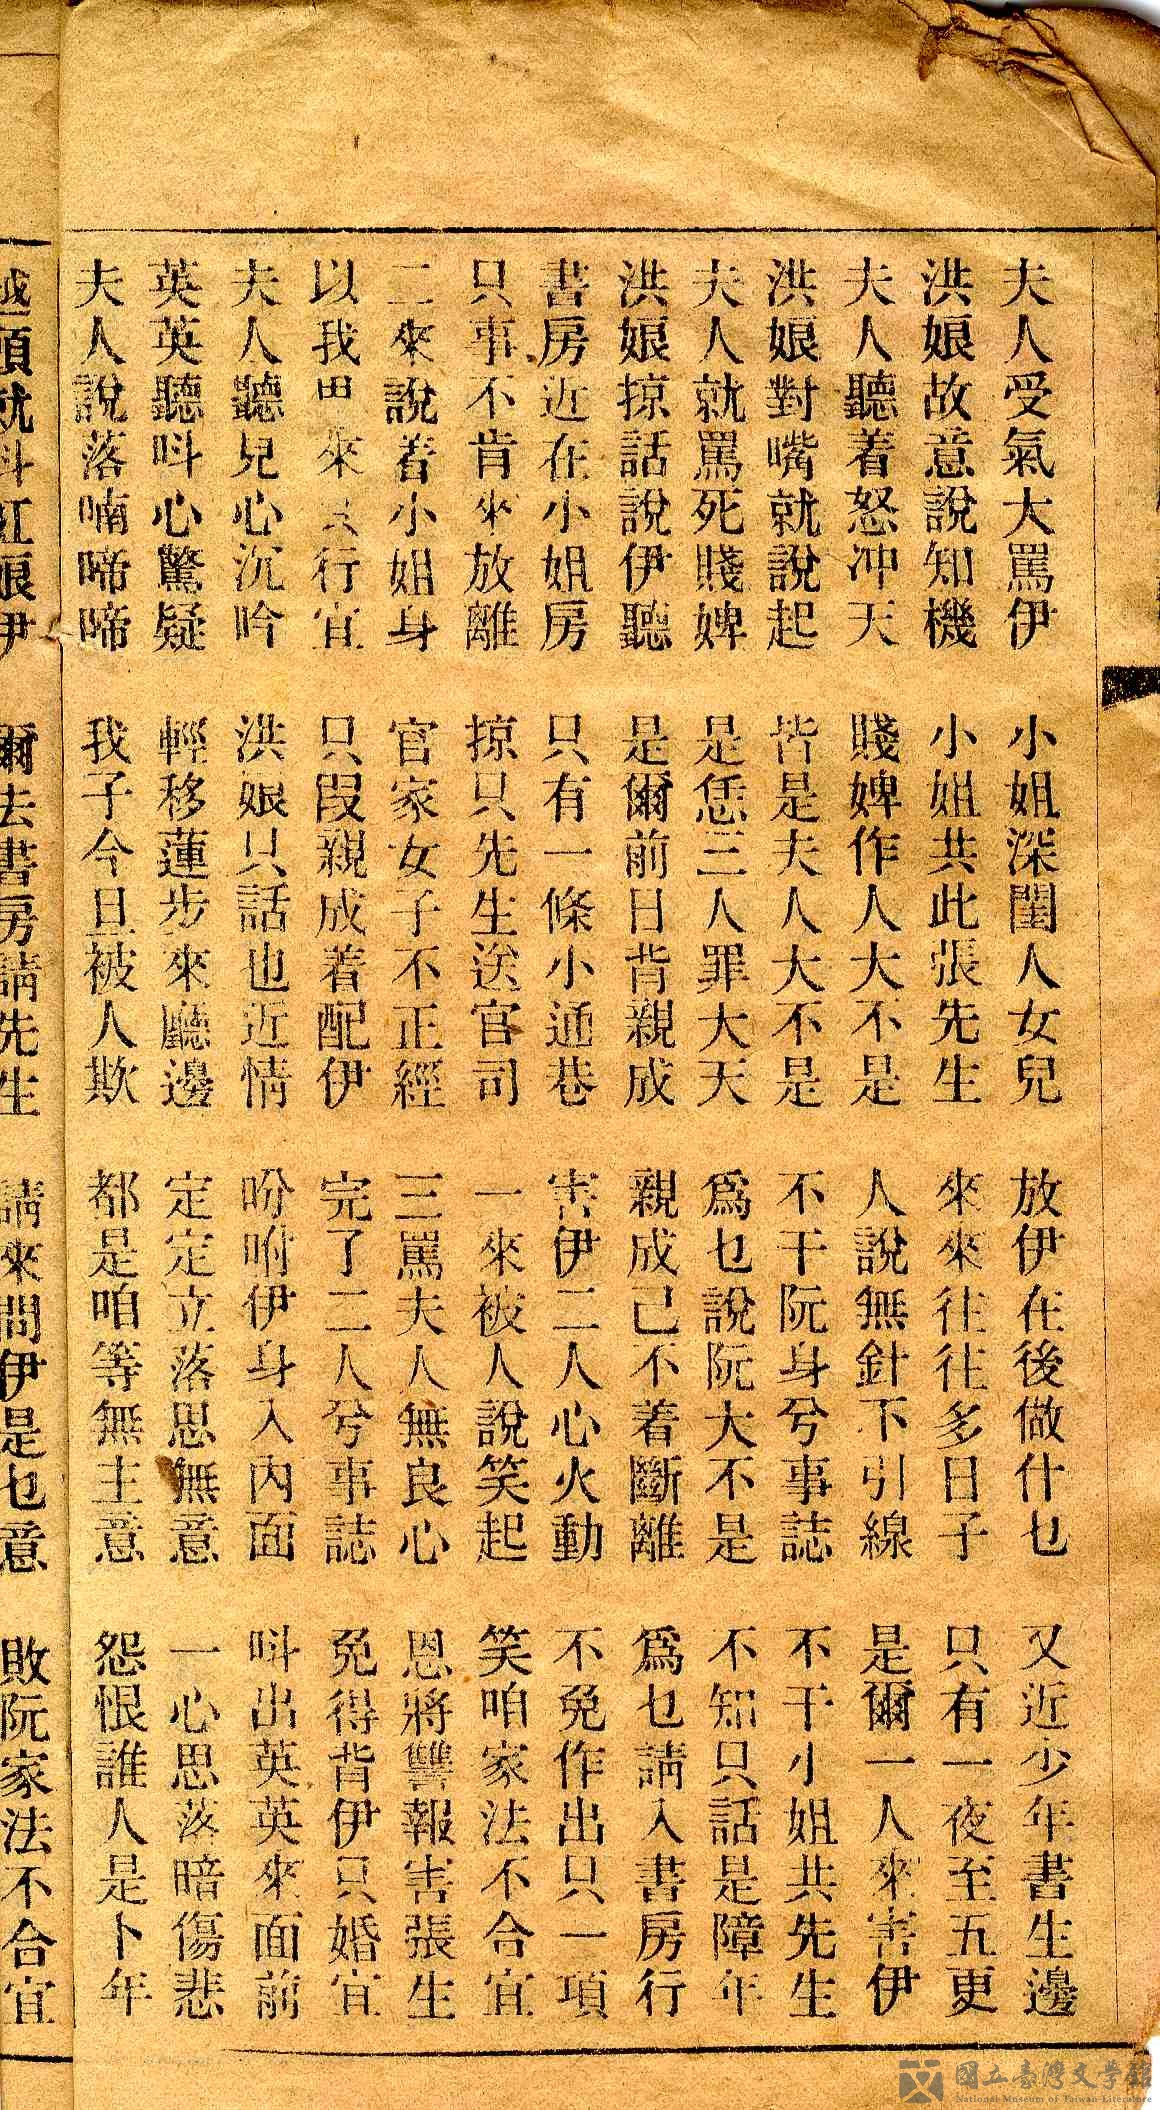 夫人受氣大罵伊 小姐深閨人女兒 放伊在後做什乜 又近少年書生邊
洪娘故意說知機 小姐共此張先生 來來往往多日子 只有一夜至五更
夫人聽着怒冲天 賤婢作人大不是 人說無針不引線 是爾一人來害伊
洪娘對嘴就說起 皆是夫人大不是 不干阮身兮事誌 不干小姐共先生
夫人就罵死賤婢 是恁三人罪大天 爲乜說阮大不是 不知只話是障年
洪娘掠話說伊聽 是爾前日背親成 親成己不着斷離 爲乜請入書房行
書房近在小姐房 只有一條小通巷 害伊二人心火動 不免作出只一項
只事不肯來放離 掠只先生送官司 一來被人說笑起 笑咱家法不合宜
二來說着小姐身 官家女子不正經 三罵夫人無良心 恩將讐報害張生
以我 來 行宜 只段親成着配伊 完了二人兮事誌 免得背伊只婚宜
夫人聽見心沉吟 洪娘只話也近情 吩咐伊身入內面 呌出英英來面前
英英聽呌心驚疑 輕移蓮步來廳邊 定定立落思無意 一心思落暗傷悲
夫人說落喃啼啼 我子今旦被人欺 都是咱等無主意 怨恨誰人是卜年
越頭就呌紅娘伊 爾去書房請先生 請來問伊是乜意 敗阮家法不合宜
國立臺灣文學館
National Museum of Taiwan Literature